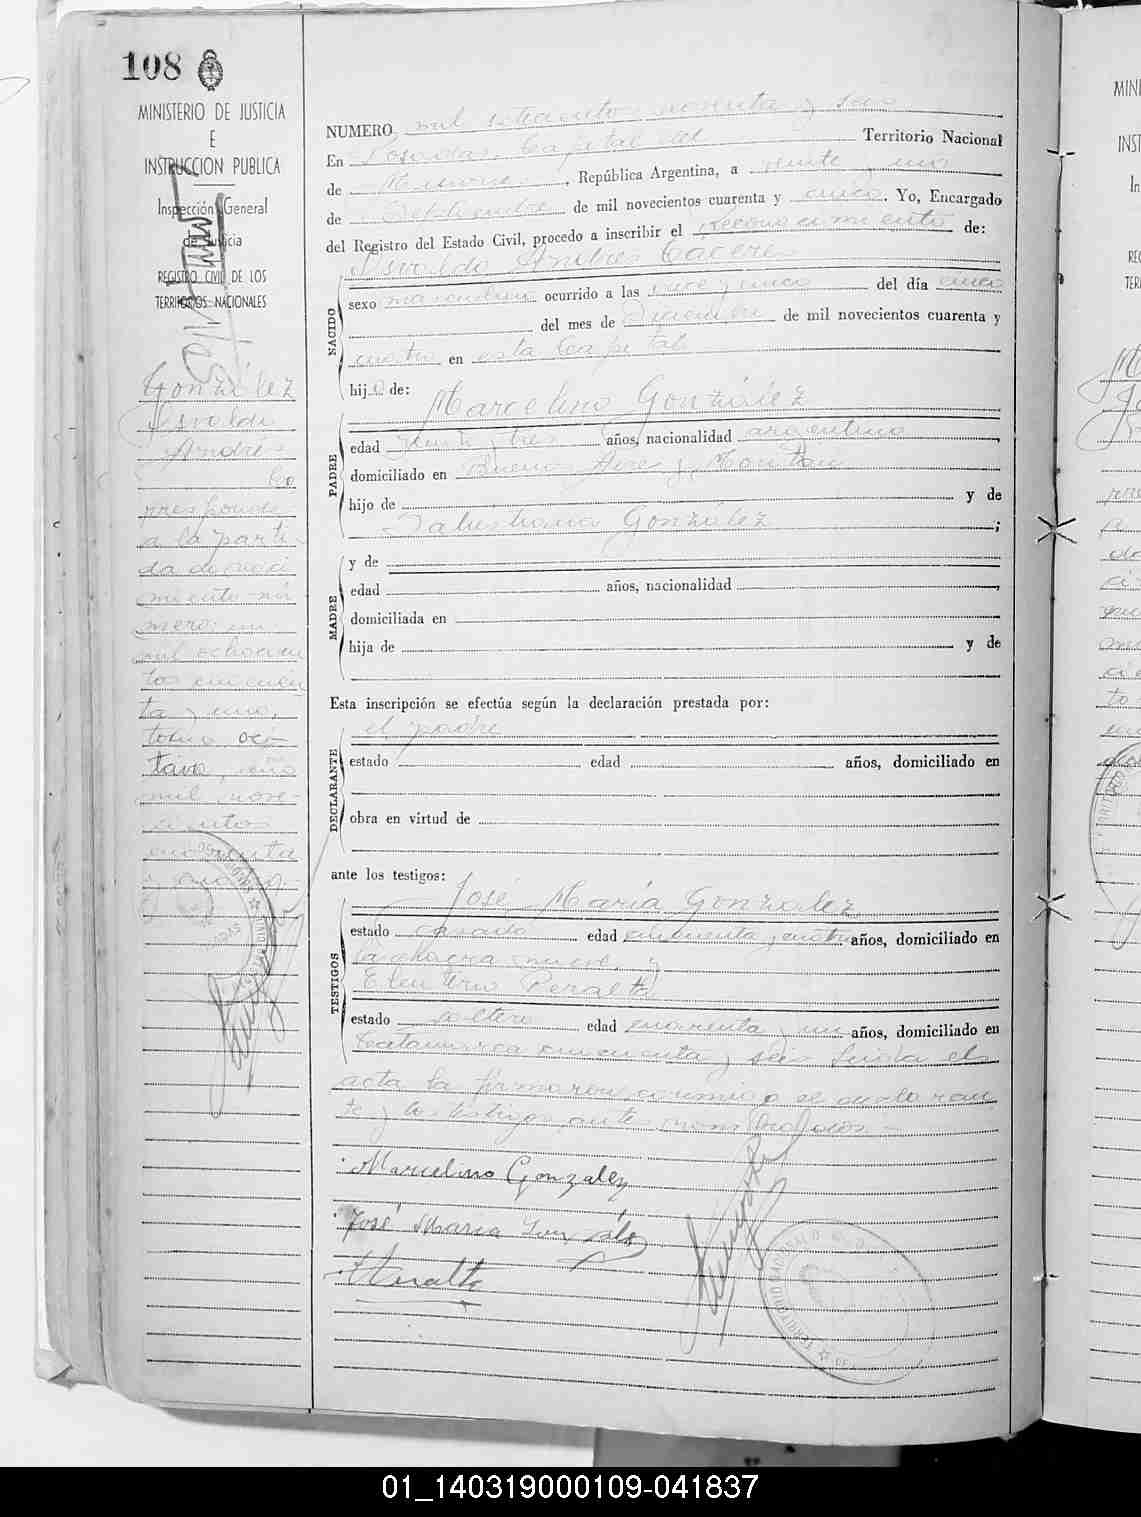 108
MINISTERIO DE JUSTICIA
E
INSTRUCCION PUBLICA
Inspección General
de Justicia
REGISTRO CIVIL DE LOS
TERRITORIOS NACIONALES
González
Osvaldo
Andrés
Co
rresponde
a la parti
da de naci
miento nú
mero: un
mil ochocien
tos cincuen
ta y uno,
tomo oc-
tavo, año
mil nove-
cientos
cuarenta
NUMERO mil setecientos noventa y seis
En Posadas, Capital del Territorio Nacional
de Misiones, República Argentina, a veinte uno
de Septiembre de mil novecientos cuarenta y cinco. Yo, Encargado
del Registro del Estado Civil, procedo a inscribir el reconocimiento de:
NACIDO
Osvaldo Andrés Cáceres
sexo masculino ocurrido a las once y cinco del día cinco
del mes de Diciembre de mil novecientos cuarenta y
cuatro en esta Capital
hijo de:
PADRE
Marcelino González
edad y tres años, nacionalidad argentino,
domiciliado en Buenos Aires y
hijo de y de
Salustiana González;
MADRE
y de
edad años, nacionalidad,
domiciliada en
hija de y de
Esta inscripción se efectúa según la declaración prestada por:
DECLARANTE
el padre
estado edad años, domiciliado en
obra en virtud de
ante los testigos:
TESTIGOS
José María González
estado casado edad cincuenta y cuatro años, domiciliado en
la chacra nueve, y
Eleuterio Peralta
estado soltero edad cuarenta y un años, domiciliado en
Catamarca cincuenta y seis Leída el
acta la firmaron conmigo el declaran
te y los testigos
Marcelino Gonzalez
José Maria González
EPeralta
01_140319000109-041837